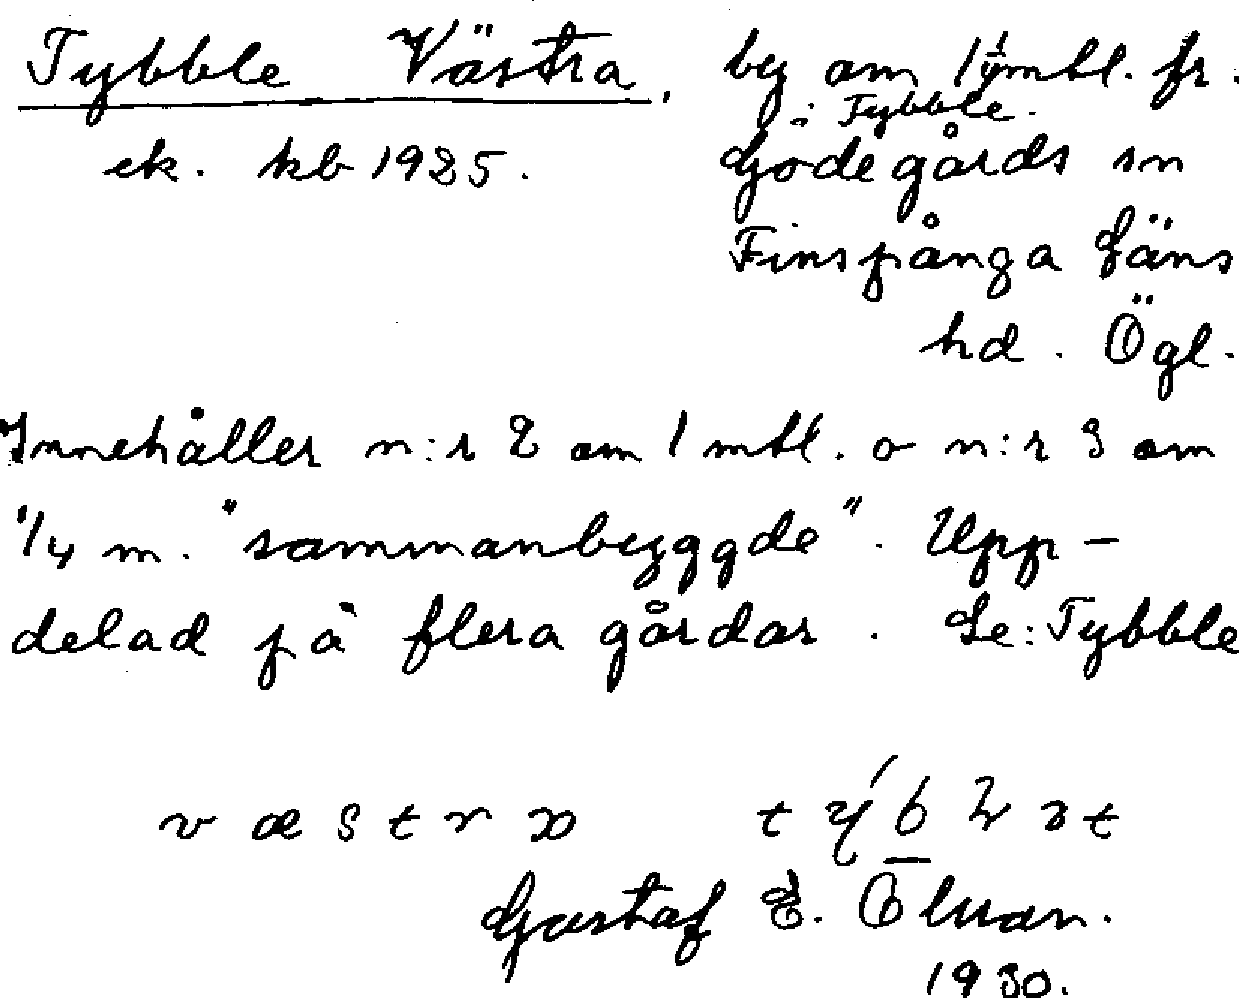 Tybble Västra, by om 1 1/4 mtl. fr.
i Tybble.
ek. kb 1925. Godegårds sn
Finspånga läns
hd. Ögl.
Innehåller n:r 2 om 1 mtl. o n:r 3 om
1/4 m. "sammanbyggde". Upp-
delad på flera gårdar. Se: Tybble
væstra
Gustaf E.
1930.